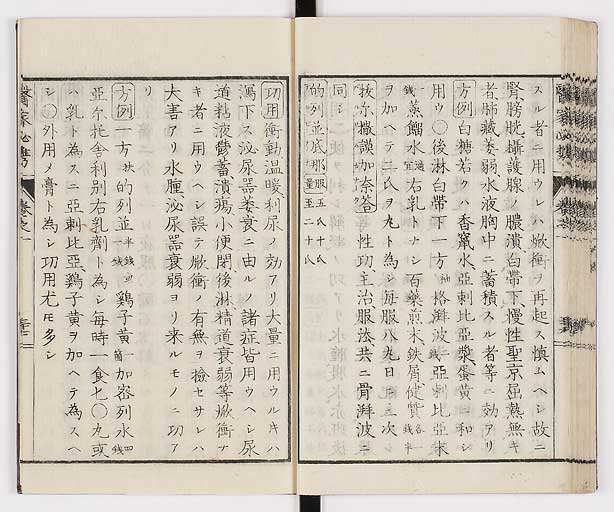 スル者ニ用ウレハ焮衝ヲ再起ス慎ムヘシ故ニ
腎膀胱攝護腺ノ膿潰白帯下慢性聖京屈熱無キ
者肺臓萎弱水液胸中ニ蓄積スル者等ニ効アリ
方例 白糖若クハ香竄水亞剌比亞漿蛋黄ニ和シ
用ウ〇後淋白帯下一方 格湃波 亞剌比亞末
蒸餾水 右乳トナシ百藥煎末鉄屑健質
ヲ加ヘテ二氏ヲ九トナシ毎服八九日ニ三次
牧尓撒謨加奈荅 性功主治服法共ニ骨湃波ニ
同シ
的列並底那 服五氏十氏量至二十氏
功用 衝動温暖利尿ノ効アリ大量ニ用ウルキハ
瀉下ス泌尿器萎衰ニ由ルノ諸症皆用ウヘシ尿
道粘液鬱蓄潰瘍小便閉後淋精道衰弱等焮衝ナ
キ者ニ用ウヘシ誤テ焮衝ノ有無ヲ檢セサレハ
大害アリ水腫泌尿器衰弱ヨリ来ルモノニ功ア
リ
方例 一方 的列並 鷄子黄 加密列水
亞尓托舎利別右乳劑ト為シ毎時一食匕〇九或
ハ乳ト為スニ亞剌比亞鷄子黄ヲ加ヘテ為スヘ
シ〇外用メ膏ト為シ功用尤モ多シ